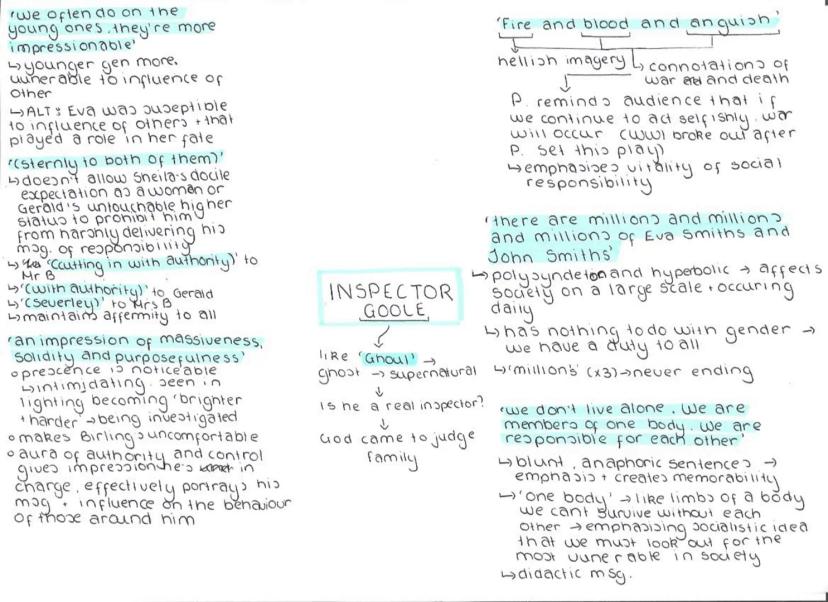 'we often do on the
young ones. they're more
impressionable'
↳ younger gen more.
vunerable to influence of
other
↳ ALT: Eva was suseptible
to influence of others + that
played a role in her fate
'(sternly to both of them)'
↳ doesn't allow Sheila's docile
expectation as a woman or
Gerald's untouchable higher
status to prohibit him
from harshly delivering his
msg. of responsibility
↳ '(cutting in with authority)' to
Mr B
↳ '(with authority)' to Gerald
↳ '(severley)' to Mrs B
↳ maintains affermity to all
'an impression of massiveness,
solidity and purposefulness'
○ prescence is noticeable
↳ intimidating. seen in
lighting becoming 'brighter
+ harder' → being investigated
○ makes Birlings uncomfortable
○ aura of authority and control
gives impression he's in
charge, effectively portrays his
msg + influence on the behaviour
of those around him
INSPECTOR
GOOLE
like 'Ghoul' →
ghost → supernatural
Is he a real inspector?
God came to judge
family
'Fire and blood and anguish'
hellish imagery ↳ connotations of
war and death
P. reminds audience that if
we continue to act selfishly. war
will occur (WW1 broke out after
P. set this play)
↳ emphasises vitality of social
responsibility
'there are millions and millions
and millions of Eva Smiths and
John Smiths'
↳ polysyndeton and hyperbolic → affects
society on a large scale + occuring
daily
↳ has nothing to do with gender →
we have a duty to all
↳ 'millions' (x3) → never ending
'we don't live alone. We are
members of one body. We are
responsible for each other'
↳ blunt, anaphoric sentences →
emphasis + creates memorability
↳ 'one body' → like limbs of a body
we cant survive without each
other → emphasising socialistic idea
that we must look out for the
most vunerable in society
↳ didactic msg.